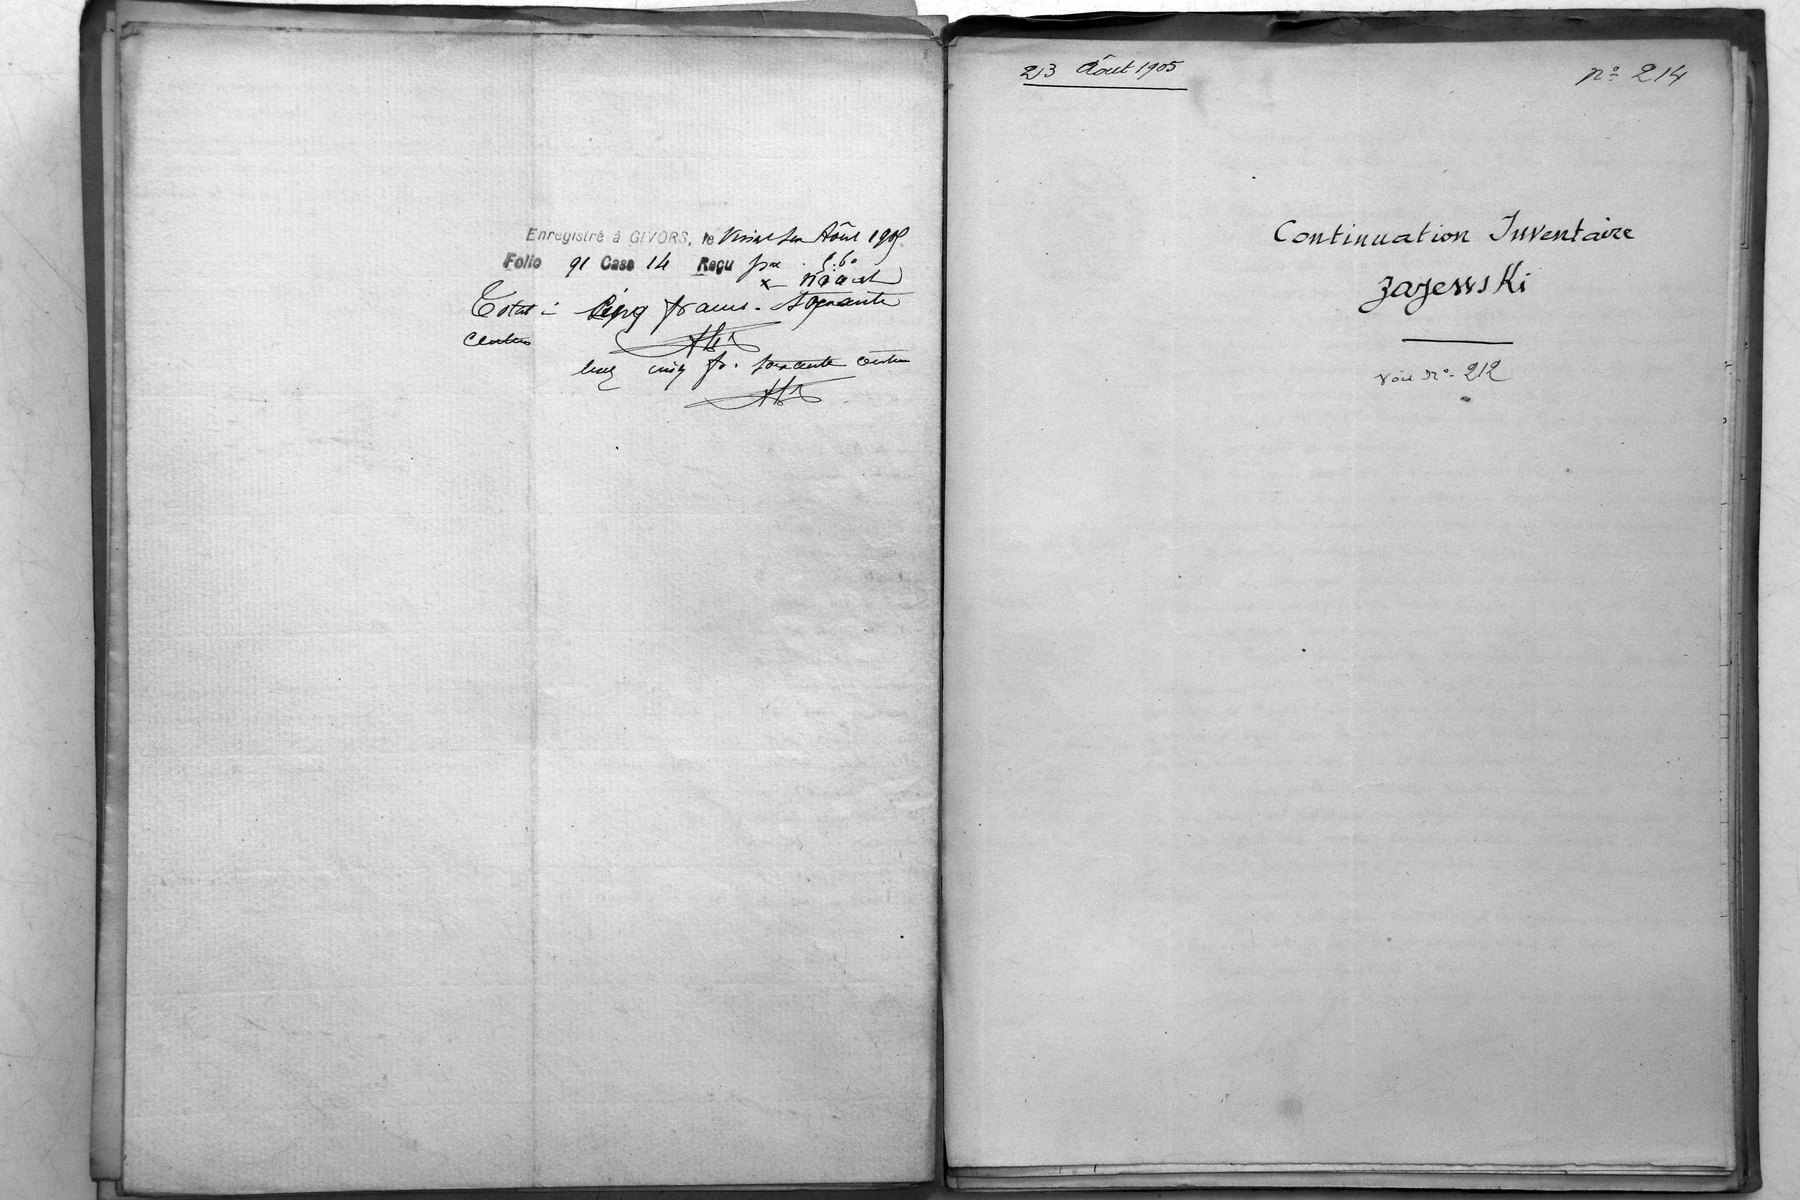 Enregistré à GIVORS, le Vingt six Aôut 1905
Folio 91 Case 14 Reçu
Total : Cinq francs soixante
centimes
cinq fr. soixante centimes
23 Aôut 1905
n° 214
Continuation Inventaire
Zajewski
Voir N° 212